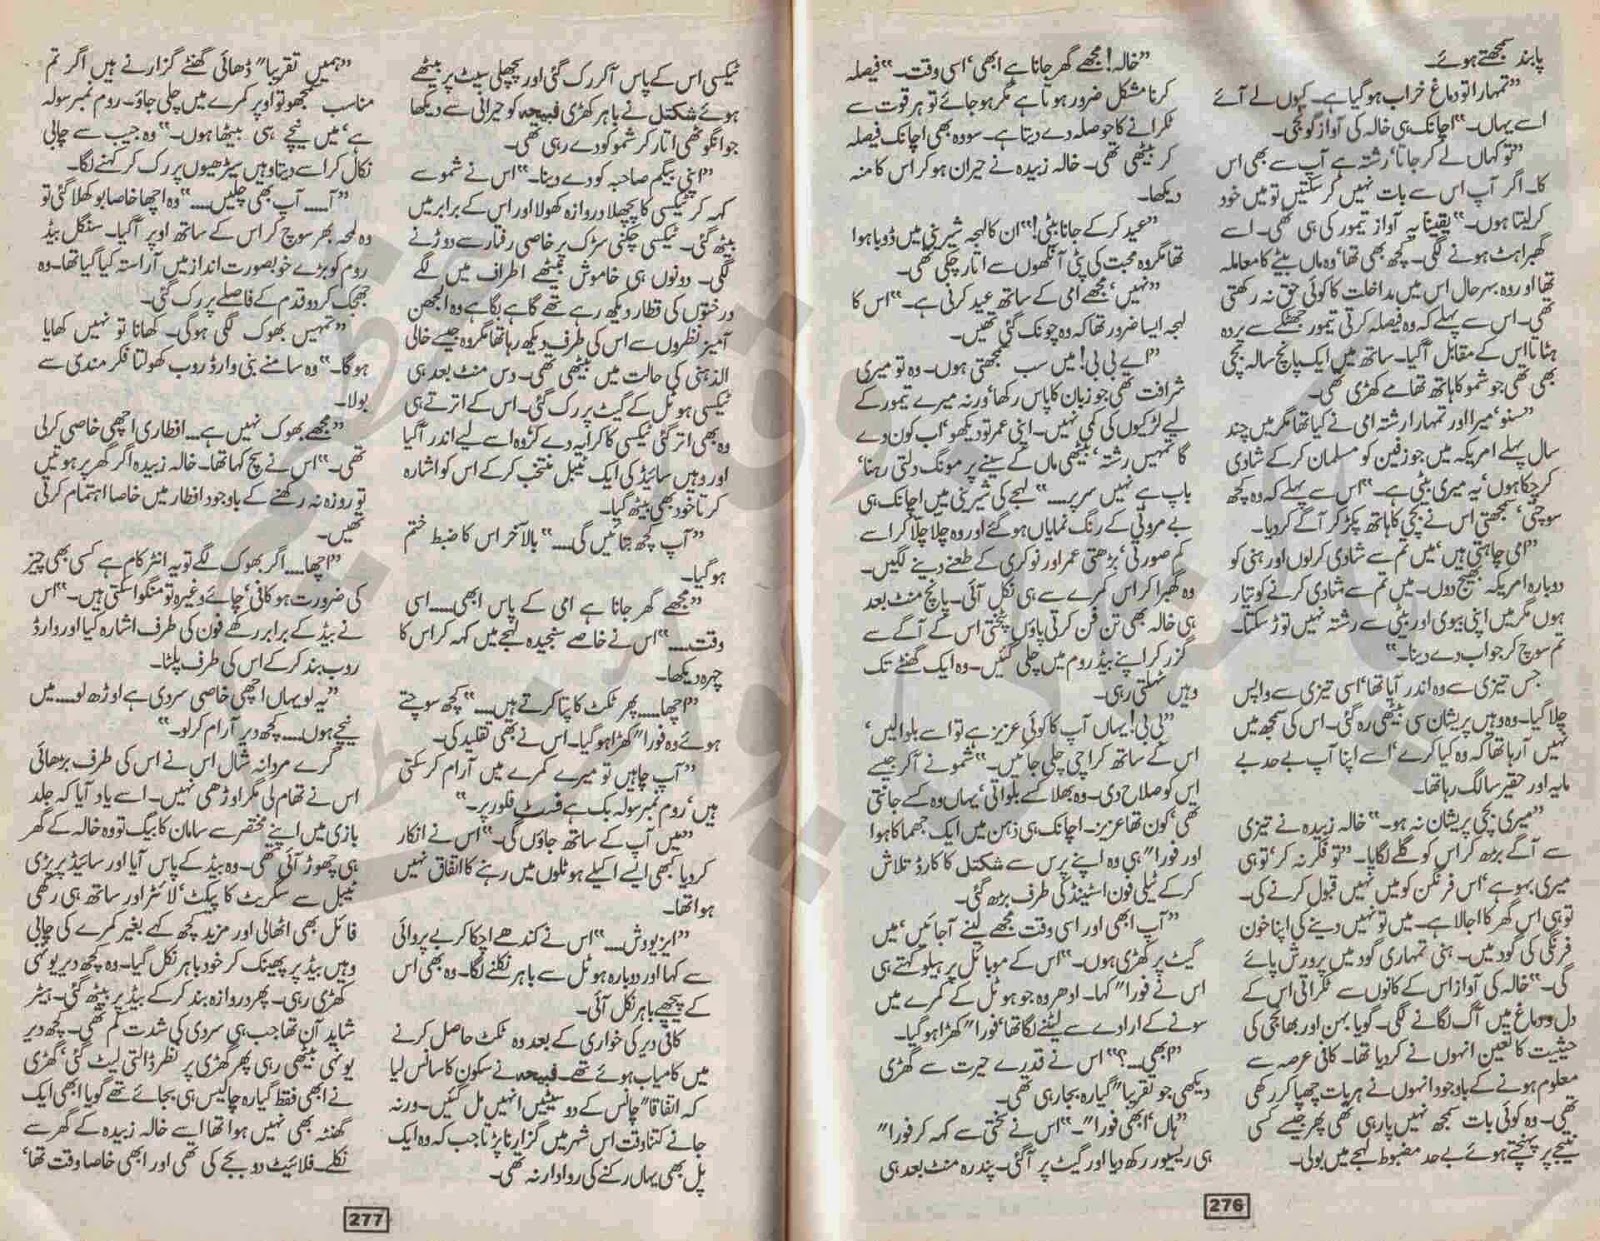 پابند سمجھتے ہوئے۔
”تمہارا تو دماغ خراب ہو گیا ہے۔ کیوں لے آئے
اسے یہاں۔“ اچانک ہی خالہ کی آواز گونجی۔
”تو کہاں لے کر جاتا‘ رشتہ ہے آپ سے بھی اس
کا۔ اگر آپ اس سے بات نہیں کر سکتیں تو میں خود
کر لیتا ہوں۔“ یقینا یہ آواز تیمور کی ہی تھی۔ اسے
گھبراہٹ ہونے لگی۔ کچھ بھی تھا‘ وہ ماں بیٹے کا معاملہ
تھا اور وہ بہرحال اس میں مداخلت کا کوئی حق نہ رکھتی
تھی۔ اس سے پہلے کہ وہ فیصلہ کرتی تیمور جھٹکے سے پردہ
ہٹاتا اس کے مقابل آ گیا۔ ساتھ میں ایک پانچ سالہ بچی
بھی تھی جو شمو کا ہاتھ تھامے کھڑی تھی۔
”سنو‘ میرا اور تمہارا رشتہ امی نے کیا تھا مگر میں چند
سال پہلے امریکہ میں جوزفین کو مسلمان کر کے شادی
کر چکا ہوں‘ یہ میری بیٹی ہے۔“ اس سے پہلے کہ وہ کچھ
سوچتی‘ سمجھتی اس نے بچی کا ہاتھ پکڑ کر آگے کر دیا۔
”امی چاہتی ہیں‘ میں تم سے شادی کر لوں اور ہنی کو
دوبارہ امریکہ بھیج دوں۔ میں تم سے شادی کرنے کو تیار
ہوں مگر میں اپنی بیوی اور بیٹی سے رشتہ نہیں توڑ سکتا۔
تم سوچ کر جواب دے دینا۔“
جس تیزی سے وہ اندر آیا تھا‘ اسی تیزی سے واپس
چلا گیا۔ وہ وہیں پریشان سی بیٹھی رہ گئی۔ اس کی سمجھ میں
نہیں آ رہا تھا کہ وہ کیا کرے‘ اسے اپنا آپ بے حد بے
مایہ اور حقیر سا لگ رہا تھا۔
”میری بچی پریشان نہ ہو۔“ خالہ زبیدہ نے تیزی
سے آگے بڑھ کر اس کو گلے لگایا۔ ”تو فکر نہ کر‘ تو ہی
میری بہو ہے‘ اس فرنگن کو میں نہیں قبول کرنے کی۔
تو ہی اس گھر کا اجالا ہے۔ میں تو نہیں دینے کی اپنا خون
فرنگی کی گود میں۔ ہنی تمہاری گود میں پرورش پائے
گی۔“ خالہ کی آواز اس کے کانوں سے ٹکراتی اس کے
دل و دماغ میں آگ لگانے لگی۔ گویا بہن اور بھانجی کی
حیثیت کا تعین انہوں نے کر دیا تھا۔ کافی عرصہ سے
معلوم ہونے کے باوجود انہوں نے ہر بات چھپا کر رکھی
تھی۔ وہ کوئی بات سمجھ نہیں پا رہی تھی پھر جیسے کسی
نتیجے پر پہنچتے ہوئے بے حد مضبوط لہجے میں بولی۔
”خالہ! مجھے گھر جانا ہے ابھی‘ اسی وقت۔“ فیصلہ
کرنا مشکل ضرور ہوتا ہے مگر ہو جائے تو ہر قوت سے
ٹکرانے کا حوصلہ دے دیتا ہے۔ سو وہ بھی اچانک فیصلہ
کر بیٹھی تھی۔ خالہ زبیدہ نے حیران ہو کر اس کا منہ
دیکھا۔
”عید کر کے جانا بیٹی!“ ان کا لہجہ شیرینی میں ڈوبا ہوا
تھا مگر وہ محبت کی پٹی آنکھوں سے اتار چکی تھی۔
”نہیں‘ مجھے امی کے ساتھ عید کرنی ہے۔“ اس کا
لہجہ ایسا ضرور تھا کہ وہ چونک گئی تھیں۔
”اے بی بی! میں سب سمجھتی ہوں۔ وہ تو میری
شرافت تھی جو زبان کا پاس رکھا‘ ورنہ میرے تیمور کے
لیے لڑکیوں کی کمی نہیں۔ اپنی عمر تو دیکھو‘ اب کون دے
گا تمہیں رشتہ‘ بیٹھی ماں کے سینے پر مونگ دلتی رہنا‘
باپ ہے نہیں سر پر.....“ لہجے کی شیرینی میں اچانک ہی
بے مروتی کے رنگ نمایاں ہو گئے اور وہ چلا چلا کر اسے
کم صورتی‘ بڑھتی عمر اور نوکری کے طعنے دینے لگیں۔
وہ گھبرا کر اس کمرے سے ہی نکل آئی۔ پانچ منٹ بعد
ہی خالہ بھی تن فن کرتی پاؤں پٹختی اس کے آگے سے
گزر کر اپنے بیڈ روم میں چلی گئیں۔ وہ ایک گھنٹے تک
وہیں ٹہلتی رہی۔
”بی بی! یہاں آپ کا کوئی عزیز ہے تو اسے بلوا لیں‘
اس کے ساتھ کراچی چلی جائیں۔“ شمو نے آ کر جیسے
اس کو صلاح دی۔ وہ بھلا کسے بلواتی‘ یہاں وہ کسے جانتی
تھی‘ کون تھا عزیز۔ اچانک ہی ذہن میں ایک جھماکا ہوا
اور فورا“ ہی وہ اپنے پرس سے شکتل کا کارڈ تلاش
کر کے ٹیلی فون اسٹینڈ کی طرف بڑھ گئی۔
”آپ ابھی اور اسی وقت مجھے لینے آ جائیں‘ میں
گیٹ پر کھڑی ہوں۔“ اس کے موبائل پر ہیلو کہتے ہی
اس نے فورا“ کہا۔ ادھر وہ جو ہوٹل کے کمرے میں
سونے کے ارادے سے لیٹنے لگا تھا‘ فورا“ کھڑا ہو گیا۔
”ابھی....؟“ اس نے قدرے حیرت سے گھڑی
دیکھی جو تقریبا“ گیارہ بجا رہی تھی۔
”ہاں‘ ابھی فورا“۔“ اس نے سختی سے کہہ کر فورا“
ہی ریسیور رکھ دیا اور گیٹ پر آ گئی۔ پندرہ منٹ بعد ہی
276
ٹیکسی اس کے پاس آ کر رک گئی اور پچھلی سیٹ پر بیٹھے
ہوئے شکتل نے باہر کھڑی فبیحہ کو حیرانی سے دیکھا
جو انگوٹھی اتار کر شمو کو دے رہی تھی۔
”اپنی بیگم صاحبہ کو دے دینا۔“ اس نے شمو سے
کہہ کر ٹیکسی کا پچھلا دروازہ کھولا اور اس کے برابر میں
بیٹھ گئی۔ ٹیکسی چکنی سڑک پر خاصی رفتار سے دوڑنے
لگی۔ دونوں ہی خاموش بیٹھے اطراف میں لگے
درختوں کی قطار دیکھ رہے تھے گاہے بگاہے وہ الجھن
آمیز نظروں سے اس کی طرف دیکھ رہا تھا مگر وہ جیسے خالی
الذہنی کی حالت میں بیٹھی تھی۔ دس منٹ بعد ہی
ٹیکسی ہوٹل کے گیٹ پر رک گئی۔ اس کے اترتے ہی
وہ بھی اتر گئی ٹیکسی کا کرایہ دے کر وہ اسے لیے اندر آ گیا
اور وہیں سائیڈ کی ایک ٹیبل منتخب کر کے اس کو اشارہ
کرتا خود بھی بیٹھ گیا۔
”آپ کچھ بتائیں گی....“ بالآخر اس کا ضبط ختم
ہو گیا۔
”مجھے گھر جانا ہے امی کے پاس ابھی.... اسی
وقت....“ اس نے خاصے سنجیدہ لہجے میں کہہ کر اس کا
چہرہ دیکھا۔
”اچھا..... پھر ٹکٹ کا پتا کرتے ہیں....“ کچھ سوچتے
ہوئے وہ فورا“ کھڑا ہو گیا۔ اس نے بھی تقلید کی۔
”آپ چاہیں تو میرے کمرے میں آرام کر سکتی
ہیں‘ روم نمبر سولہ بک ہے فرسٹ فلور پر۔“
”میں آپ کے ساتھ جاؤں گی۔“ اس نے انکار
کر دیا کبھی ایسے اکیلے ہوٹلوں میں رہنے کا اتفاق نہیں
ہوا تھا۔
”ایز یو وش....“ اس نے کندھے اچکا کر بے پروائی
سے کہا اور دوبارہ ہوٹل سے باہر نکلنے لگا۔ وہ بھی اس
کے پیچھے باہر نکل آئی۔
کافی دیر کی خواری کے بعد وہ ٹکٹ حاصل کرنے
میں کامیاب ہوئے تھے۔ فبیحہ نے سکون کا سانس لیا
کہ اتفاقا“ چانس کے دو سیٹیں انہیں مل گئیں۔ ورنہ
جانے کتنا وقت اس شہر میں گزارنا پڑتا جب کہ وہ ایک
پل بھی یہاں رکنے کی روادار نہ تھی۔
”ہمیں تقریبا“ ڈھائی گھنٹے گزارنے ہیں اگر تم
مناسب سمجھو تو اوپر کمرے میں چلی جاؤ۔ روم نمبر سولہ
ہے‘ میں نیچے ہی بیٹھا ہوں۔“ وہ جیب سے چابی
نکال کر اسے دیتا وہیں سیڑھیوں پر رک کر کہنے لگا۔
”آ..... آپ بھی چلیں....“ وہ اچھا خاصا بوکھلا گئی تو
وہ لمحہ بھر سوچ کر اس کے ساتھ اوپر آ گیا۔ سنگل بیڈ
روم کو بڑے خوبصورت انداز میں آراستہ کیا گیا تھا۔ وہ
جھجک کر دو قدم کے فاصلے پر رک گئی۔
”تمہیں بھوک لگی ہوگی۔ کھانا تو نہیں کھایا
ہوگا۔“ وہ سامنے بنی وارڈ روب کھولتا فکر مندی سے
بولا۔
”مجھے بھوک نہیں ہے... افطاری اچھی خاصی کر لی
تھی۔“ اس نے سچ کہا تھا۔ خالہ زبیدہ اگر گھر پر ہوتیں
تو روزہ نہ رکھنے کے باوجود افطار میں خاصا اہتمام کرتی
تھیں۔
”اچھا.... اگر بھوک لگے تو یہ انٹرکام ہے کسی بھی چیز
کی ضرورت ہو کافی‘ چائے وغیرہ تو منگوا سکتی ہیں۔“ اس
نے بیڈ کے برابر رکھے فون کی طرف اشارہ کیا اور وارڈ
روب بند کر کے اس کی طرف پلٹا۔
”یہ لو یہاں اچھی خاصی سردی ہے اوڑھ لو.... میں
نیچے ہوں.... کچھ دیر آرام کر لو۔“
گرے مردانہ شال اس نے اس کی طرف بڑھائی
اس نے تھام لی مگر اوڑھی نہیں۔ اسے یاد آیا کہ جلد
بازی میں اپنے مختصر سے سامان کا بیگ تو وہ خالہ کے گھر
ہی چھوڑ آئی تھی۔ وہ بیڈ کے پاس آیا اور سائیڈ پر پڑی
ٹیبل سے سگریٹ کا پیکٹ‘ لائٹر اور ساتھ ہی رکھی
فائل بھی اٹھا لی اور مزید کچھ کہے بغیر کمرے کی چابی
وہیں بیڈ پر پھینک کر خود باہر نکل گیا۔ وہ کچھ دیر یونہی
کھڑی رہی۔ پھر دروازہ بند کر کے بیڈ پر بیٹھ گئی۔ ہیٹر
شاید آن تھا جب ہی سردی کی شدت کم تھی۔ کچھ دیر
یونہی بیٹھی رہی پھر گھڑی پر نظر ڈالتی لیٹ گئی‘ گھڑی
نے ابھی فقط گیارہ چالیس ہی بجائے تھے گویا ابھی ایک
گھنٹہ بھی نہیں ہوا تھا اسے خالہ زبیدہ کے گھر سے
نکلے۔ فلائیٹ دو بجے کی تھی اور ابھی خاصا وقت تھا‘
277